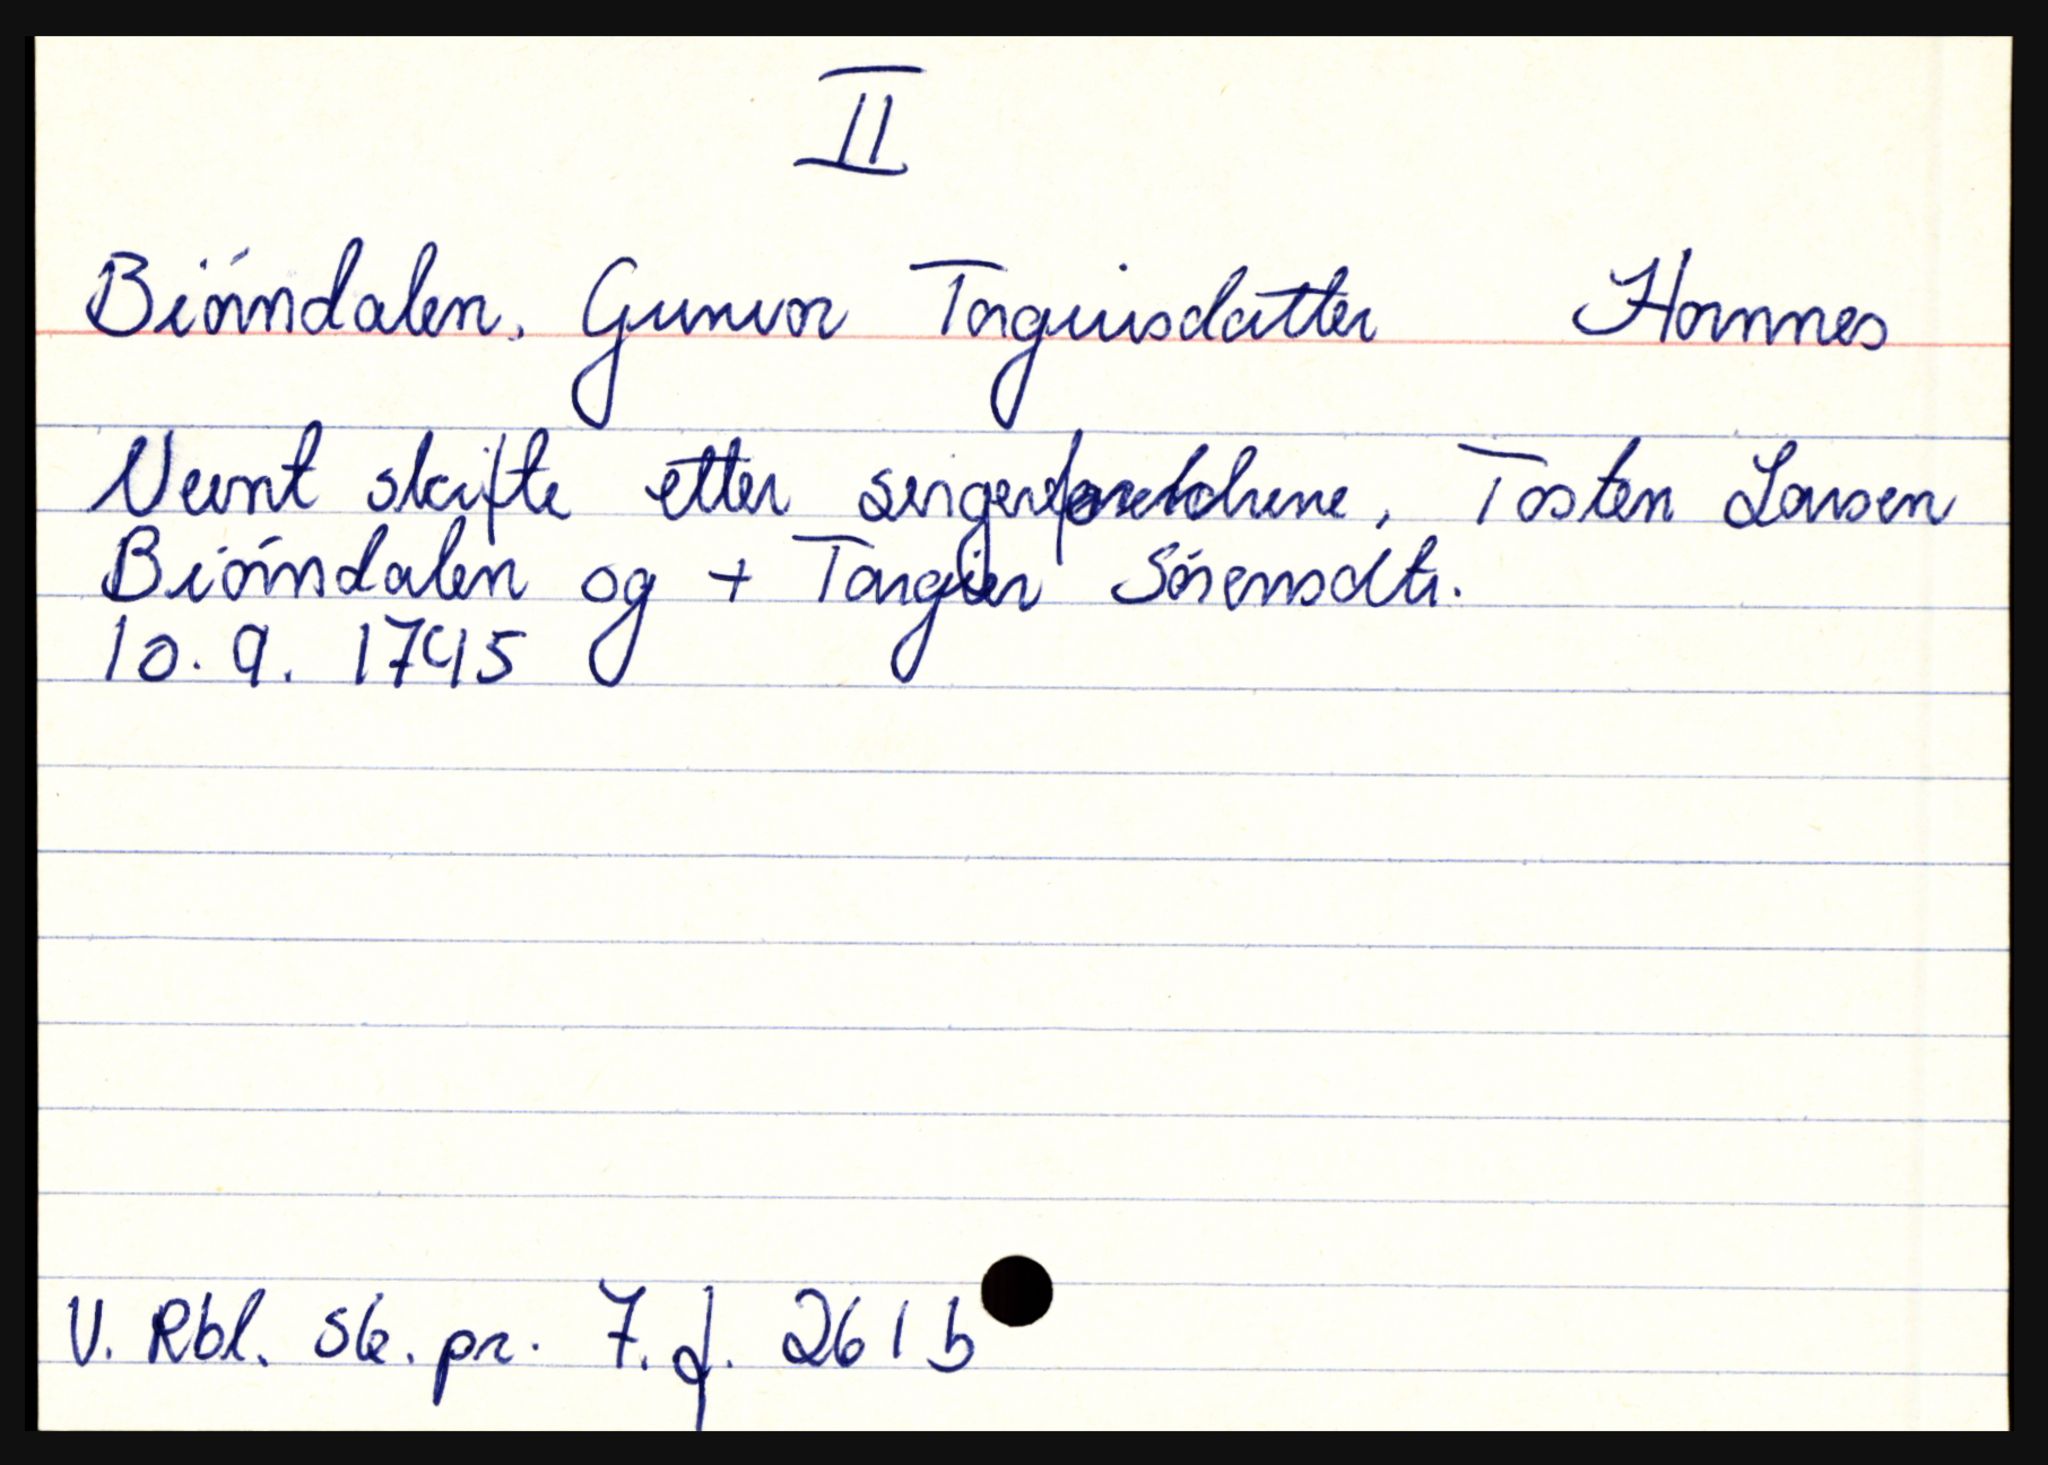 II
Biórndalen, Gunvor Torguisdatter Hornnes
Nevnt skifte etter svigerforeldrene, Tosten Larsen
Biórndalen og + Targier Sórensdtr.
10. 9. 1745
V. Rbl. Sk. pr. 7. f. 261 b